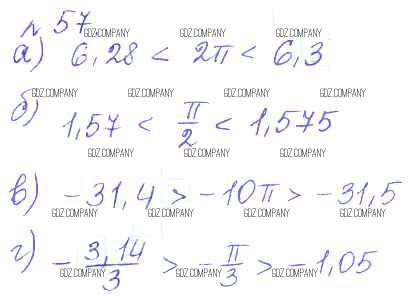 № 57
а) 6,28 < 2π < 6,3
GDZ.COMPANY GDZ.COMPANY GDZ.COMPANY
GDZ.COMPANY GDZ.COMPANY GDZ.COMPANY GDZ.COMPANY
б) 1,57 < π/2 < 1,575
GDZ.COMPANY GDZ.COMPANY GDZ.COMPANY
в) -31,4 > -10π > -31,5
GDZ.COMPANY GDZ.COMPANY GDZ.COMPANY GDZ.COMPANY
г) -3,14/3 > -π/3 > -1,05
GDZ.COMPANY GDZ.COMPANY GDZ.COMPANY